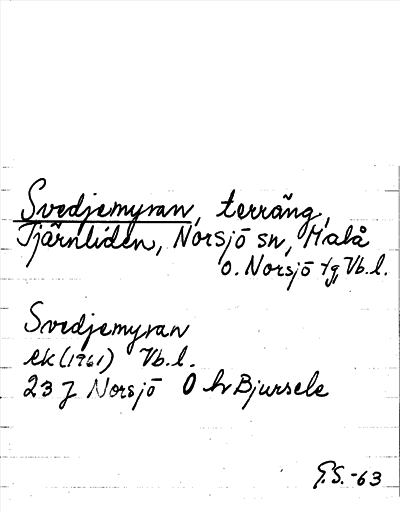 Svedjemyran, terräng,
Tjärnliden, Norsjö sn, Malå
o. Norsjö tg, Vb.l.
Svedjemyran
ek (1961) Vb.l.
23 J Norsjö O hr Bjursele
G.S.-63